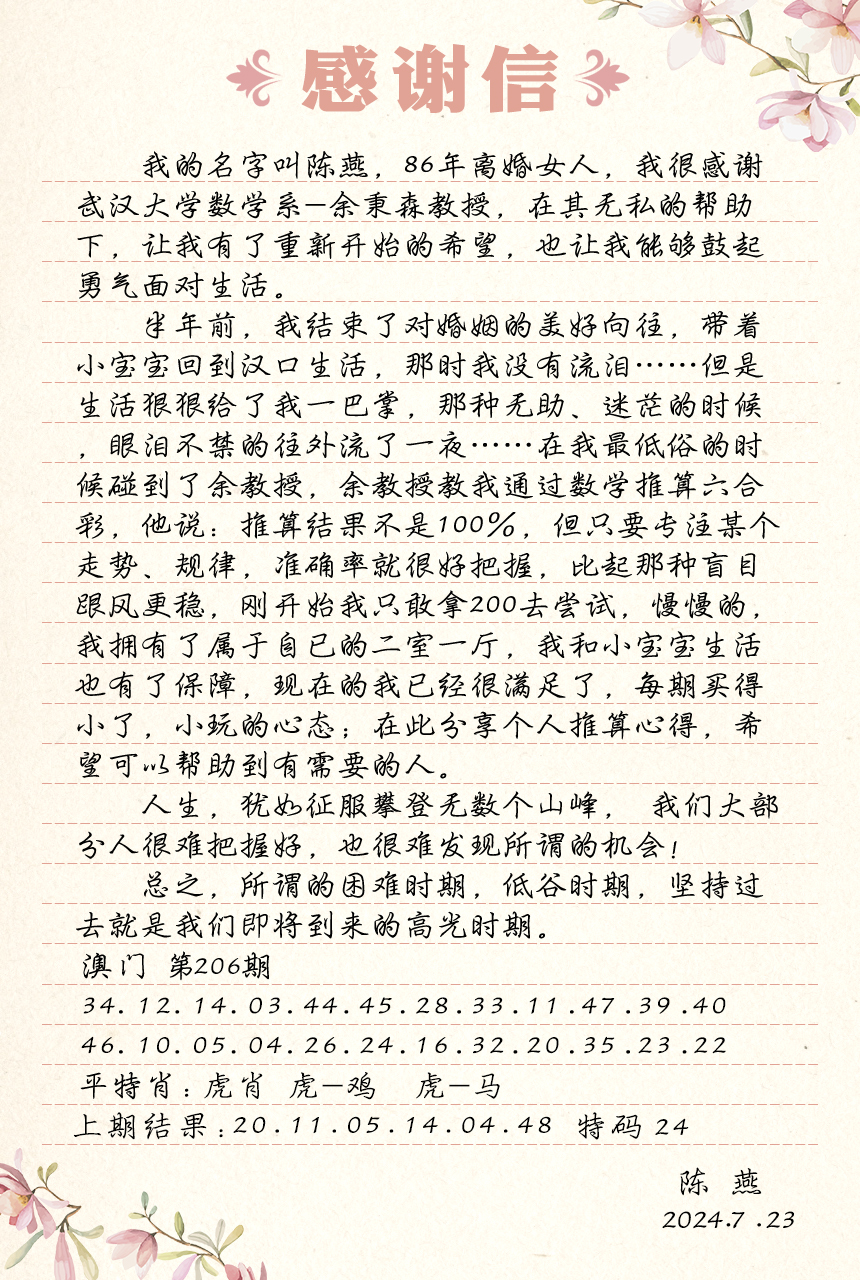 感谢信
我的名字叫陈燕，86年离婚女人，我很感谢
武汉大学数学系—余秉森教授，在其无私的帮助
下，让我有了重新开始的希望，也让我能够鼓起
勇气面对生活。
半年前，我结束了对婚姻的美好向往，带着
小宝宝回到汉口生活，那时我没有流泪……但是
生活狠狠给了我一巴掌，那种无助、迷茫的时候
，眼泪不禁的往外流了一夜……在我最低俗的时
候碰到了余教授，余教授教我通过数学推算六合
彩，他说：推算结果不是100%，但只要专注某个
走势、规律，准确率就很好把握，比起那种盲目
跟风更稳，刚开始我只敢拿200去尝试，慢慢的，
我拥有了属于自已的二室一厅，我和小宝宝生活
也有了保障，现在的我已经很满足了，每期买得
小了，小玩的心态；在此分享个人推算心得，希
望可以帮助到有需要的人。
人生，犹如征服攀登无数个山峰， 我们大部
分人很难把握好，也很难发现所谓的机会！
总之，所谓的困难时期，低谷时期，坚持过
去就是我们即将到来的高光时期。
澳门 第206期
34.12.14.03.44.45.28.33.11.47.39.40
46.10.05.04.26.24.16.32.20.35.23.22
平特肖：虎肖 虎—鸡 虎—马
上期结果：20.11.05.14.04.48 特码 24
陈 燕
2024.7.23